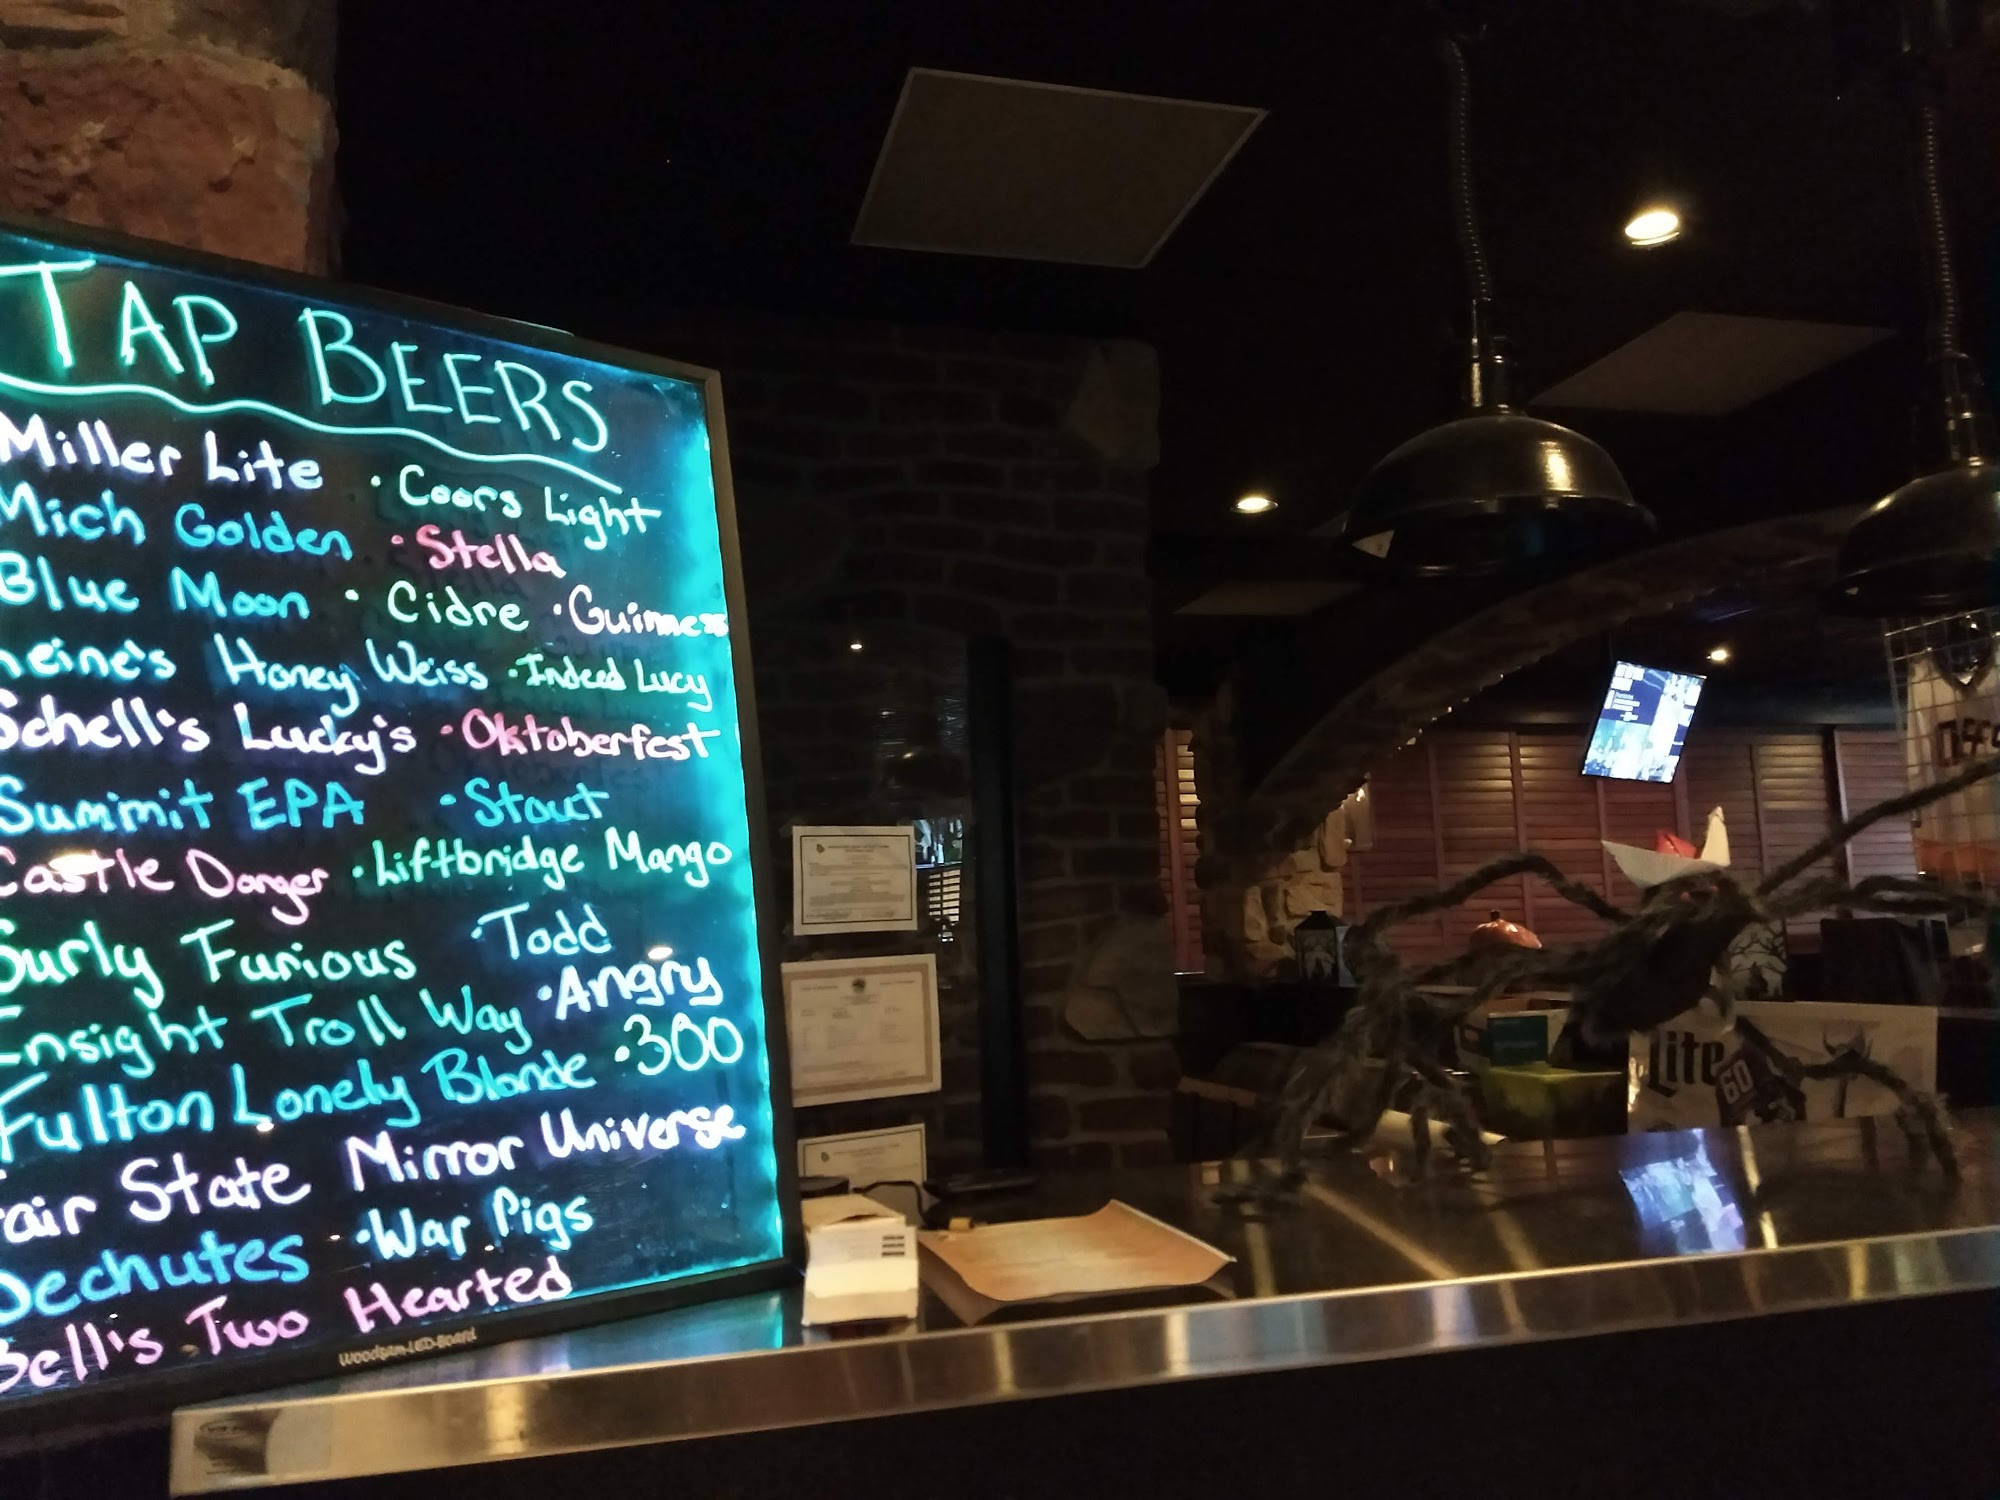 TAP BEERS
Miller Lite · Coors Light
Mich Golden · Stella
Blue Moon · Cidre · Guinness
neine's Honey Weiss · Indeed Lucy
Schell's Lucky's · Oktoberfest
Summit EPA · Stout
Castle Danger · Liftbridge Mango
Surly Furious · Todd
Ensight Troll Way · Angry
Fulton Lonely Blonde · 300
Fair State Mirror Universe
Dechutes · War Pigs
Bell's Two Hearted
Woodsam-LED-Board
Lite
60